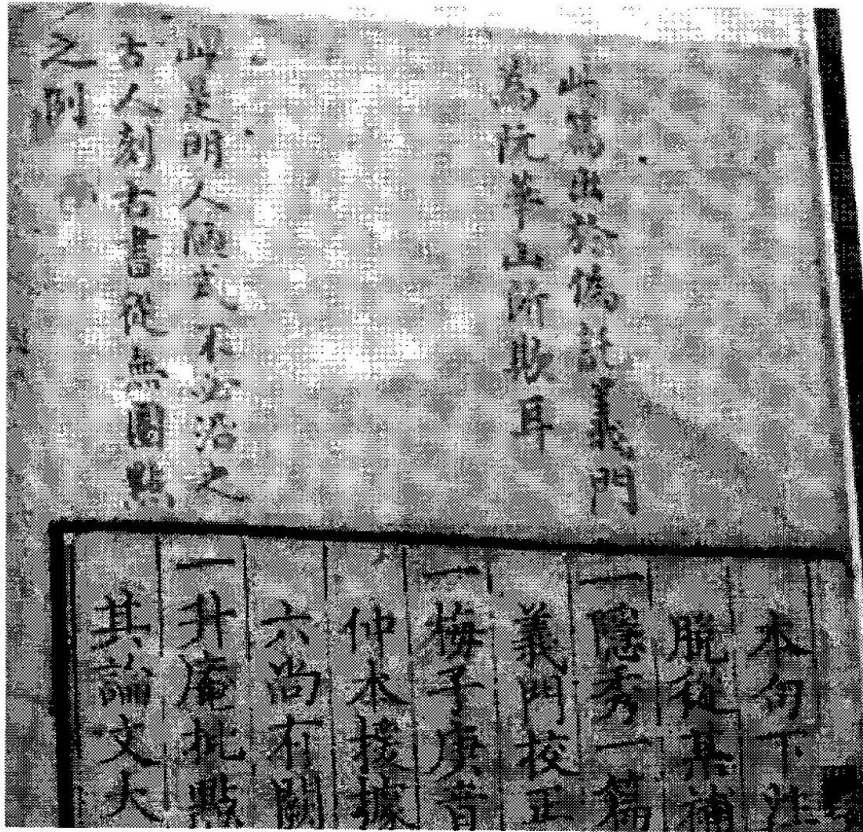 此篇出於偽託義門
為阮華山所欺耳
此是明人陋式不必沿之
古人刻古書從無圈點
之例
本句下注
脫從其補
一隱秀一篇
義門校正
一梅子庚音
仲本援據
六尚有闕
一升庵批點
其論文大